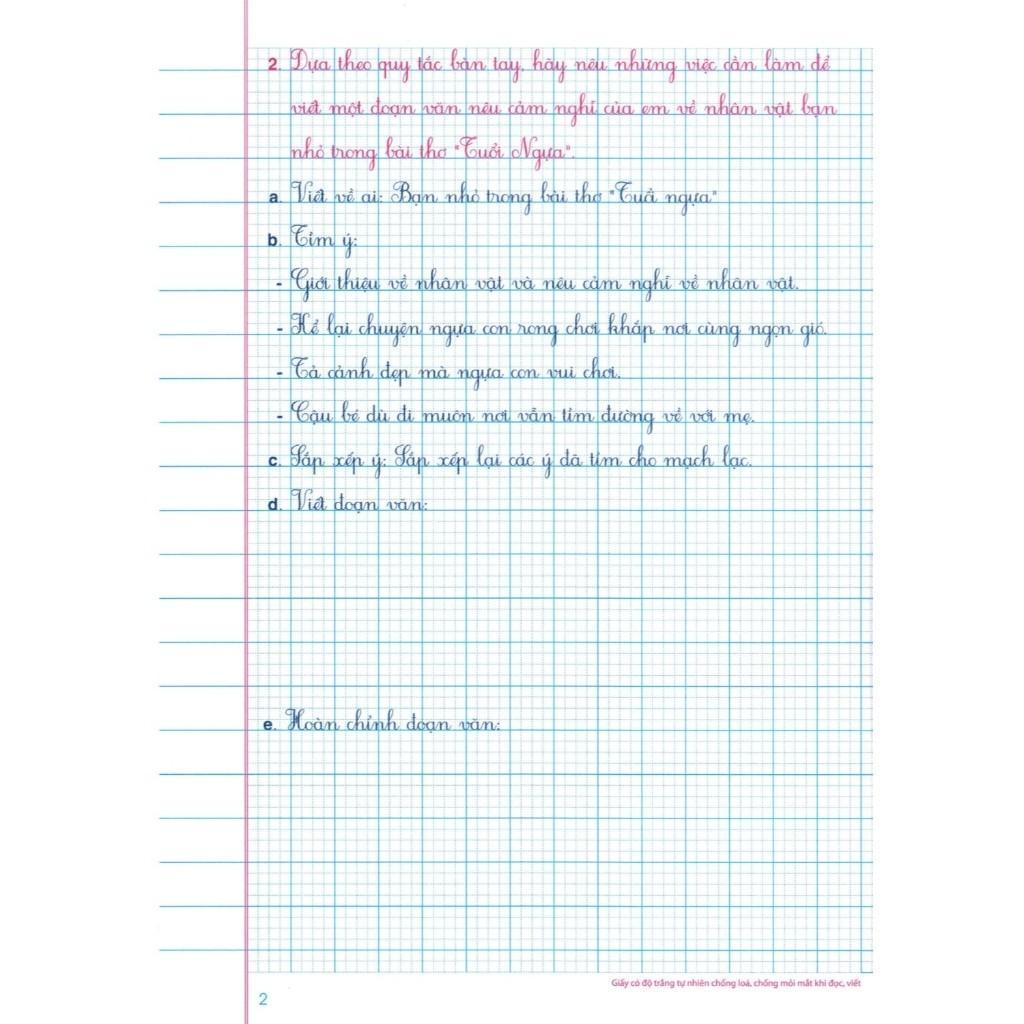 2. Dựa theo quy tắc bàn tay, hãy nêu những việc cần làm để
viết một đoạn văn nêu cảm nghĩ của em về nhân vật bạn
nhỏ trong bài thơ "Tuổi Ngựa".
a. Viết về ai: Bạn nhỏ trong bài thơ "Tuổi ngựa"
b. Tìm ý:
- Giới thiệu về nhân vật và nêu cảm nghĩ về nhân vật.
- Kể lại chuyện ngựa con rong chơi khắp nơi cùng ngọn gió.
- Tả cảnh đẹp mà ngựa con vui chơi.
- Cậu bé dù đi muôn nơi vẫn tìm đường về với mẹ.
c. Sắp xếp ý: Sắp xếp lại các ý đã tìm cho mạch lạc.
d. Viết đoạn văn:
e. Hoàn chỉnh đoạn văn:
Giấy có độ trắng tự nhiên chống loá, chống mỏi mắt khi đọc, viết
2